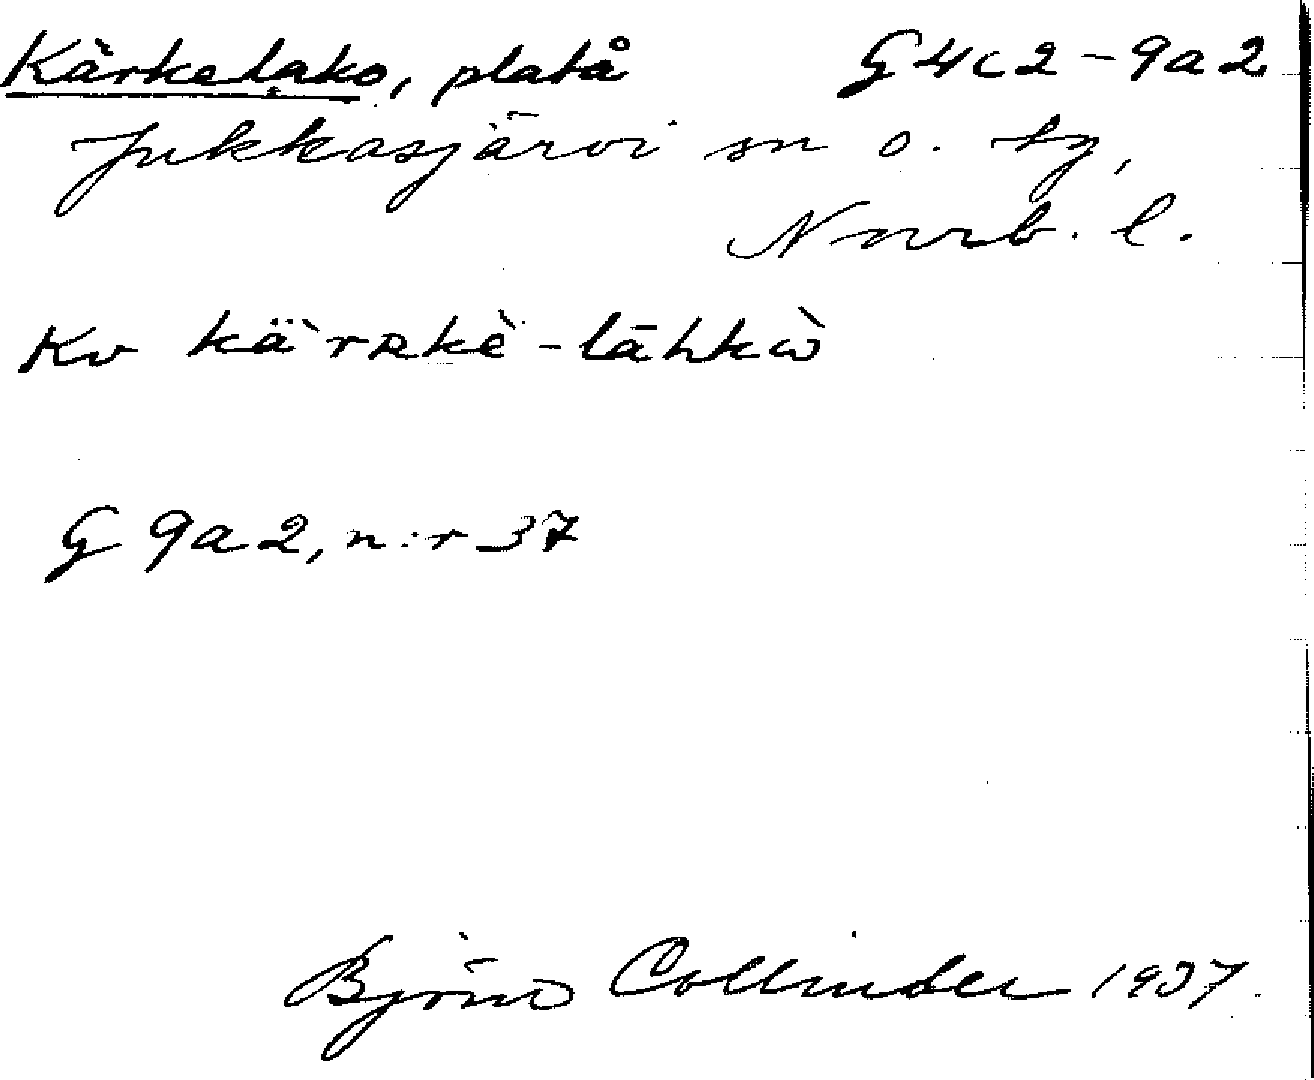 Kärkelako, platå G4c2-9a2
Jukkasjärvi sn o. tg,
Norrb. l.
Kv kä̀rʀkè-lāhkὼ
G 9a2, n:r 37
Björn Collinder 1937.